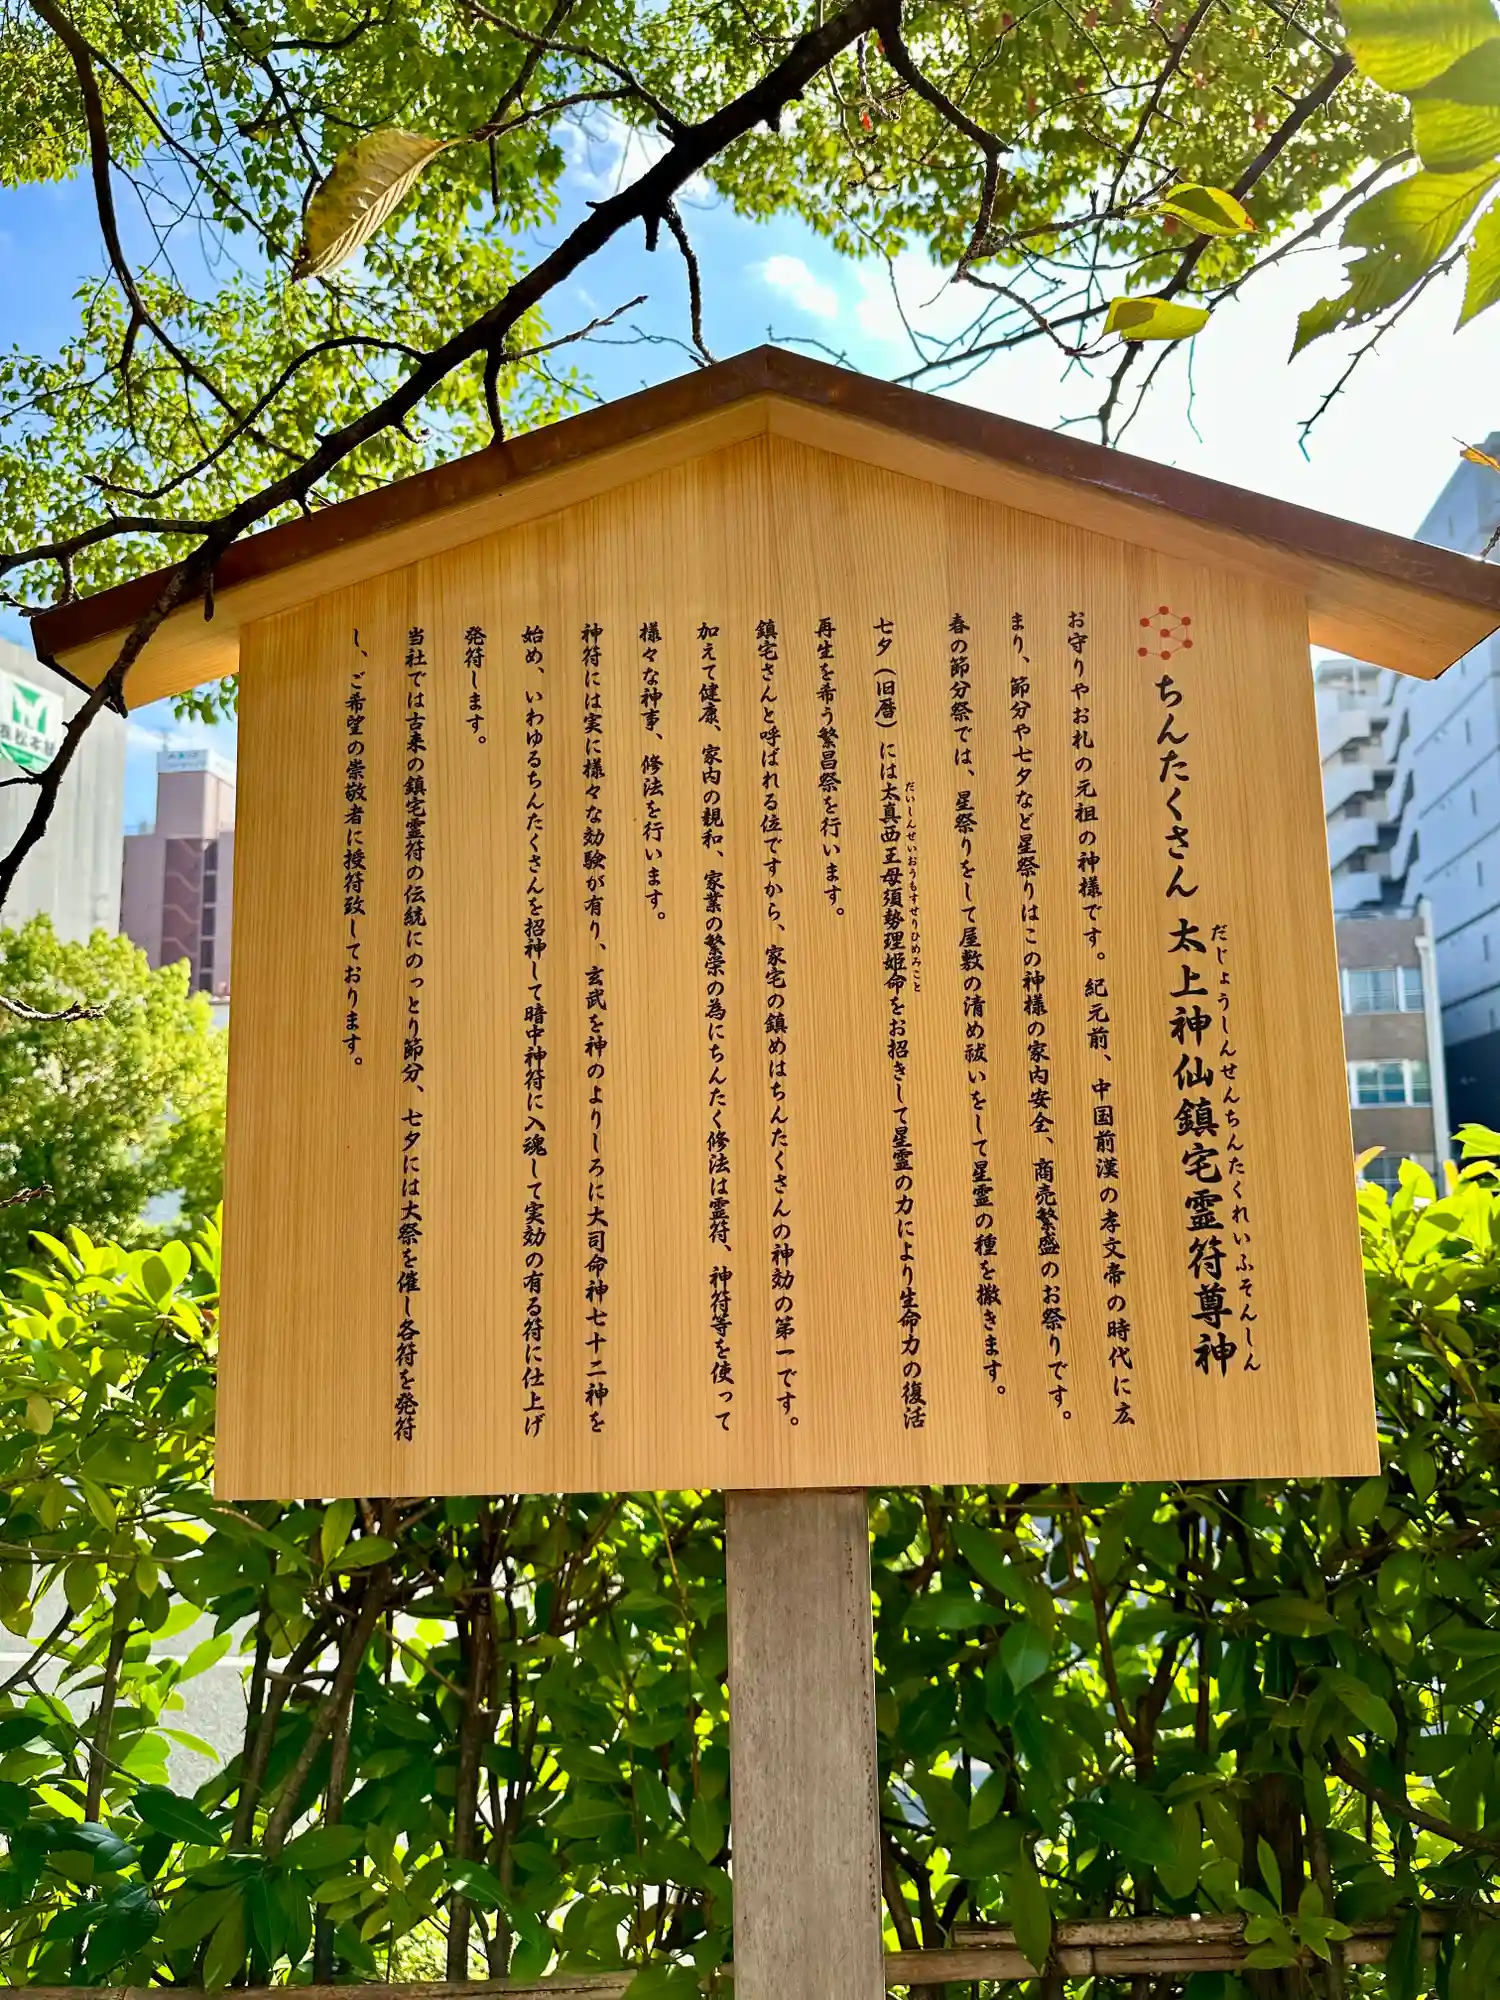 ちんたくさん 太上神仙鎮宅霊符尊神
だじょうしんせんちんたくれいふそんしん
お守りやお札の元祖の神様です。紀元前、中国前漢の孝文帝の時代に広
まり、節分や七夕など星祭りはこの神様の家内安全、商売繁盛のお祭りです。
春の節分祭では、星祭りをして屋敷の清め祓いをして星霊の種を撒きます。
七夕(旧暦)には太真西王母須勢理姫命をお招きして星霊の力により生命力の復活
だいしんせいおうもすせりひめみこと
再生を希う繁昌祭を行います。
鎮宅さんと呼ばれる位ですから、家宅の鎮めはちんたくさんの神効の第一です。
加えて健康、家内の親和、家業の繁栄の為にちんたく修法は霊符、神符等を使って
様々な神事、修法を行います。
神符には実に様々な効験が有り、玄武を神のよりしろに大司命神七十二神を
始め、いわゆるちんたくさんを招神して暗中神符に入魂して実効の有る符に仕上げ
発符します。
当社では古来の鎮宅霊符の伝統にのっとり節分、七夕には大祭を催し各符を発符
し、ご希望の崇敬者に授符致しております。